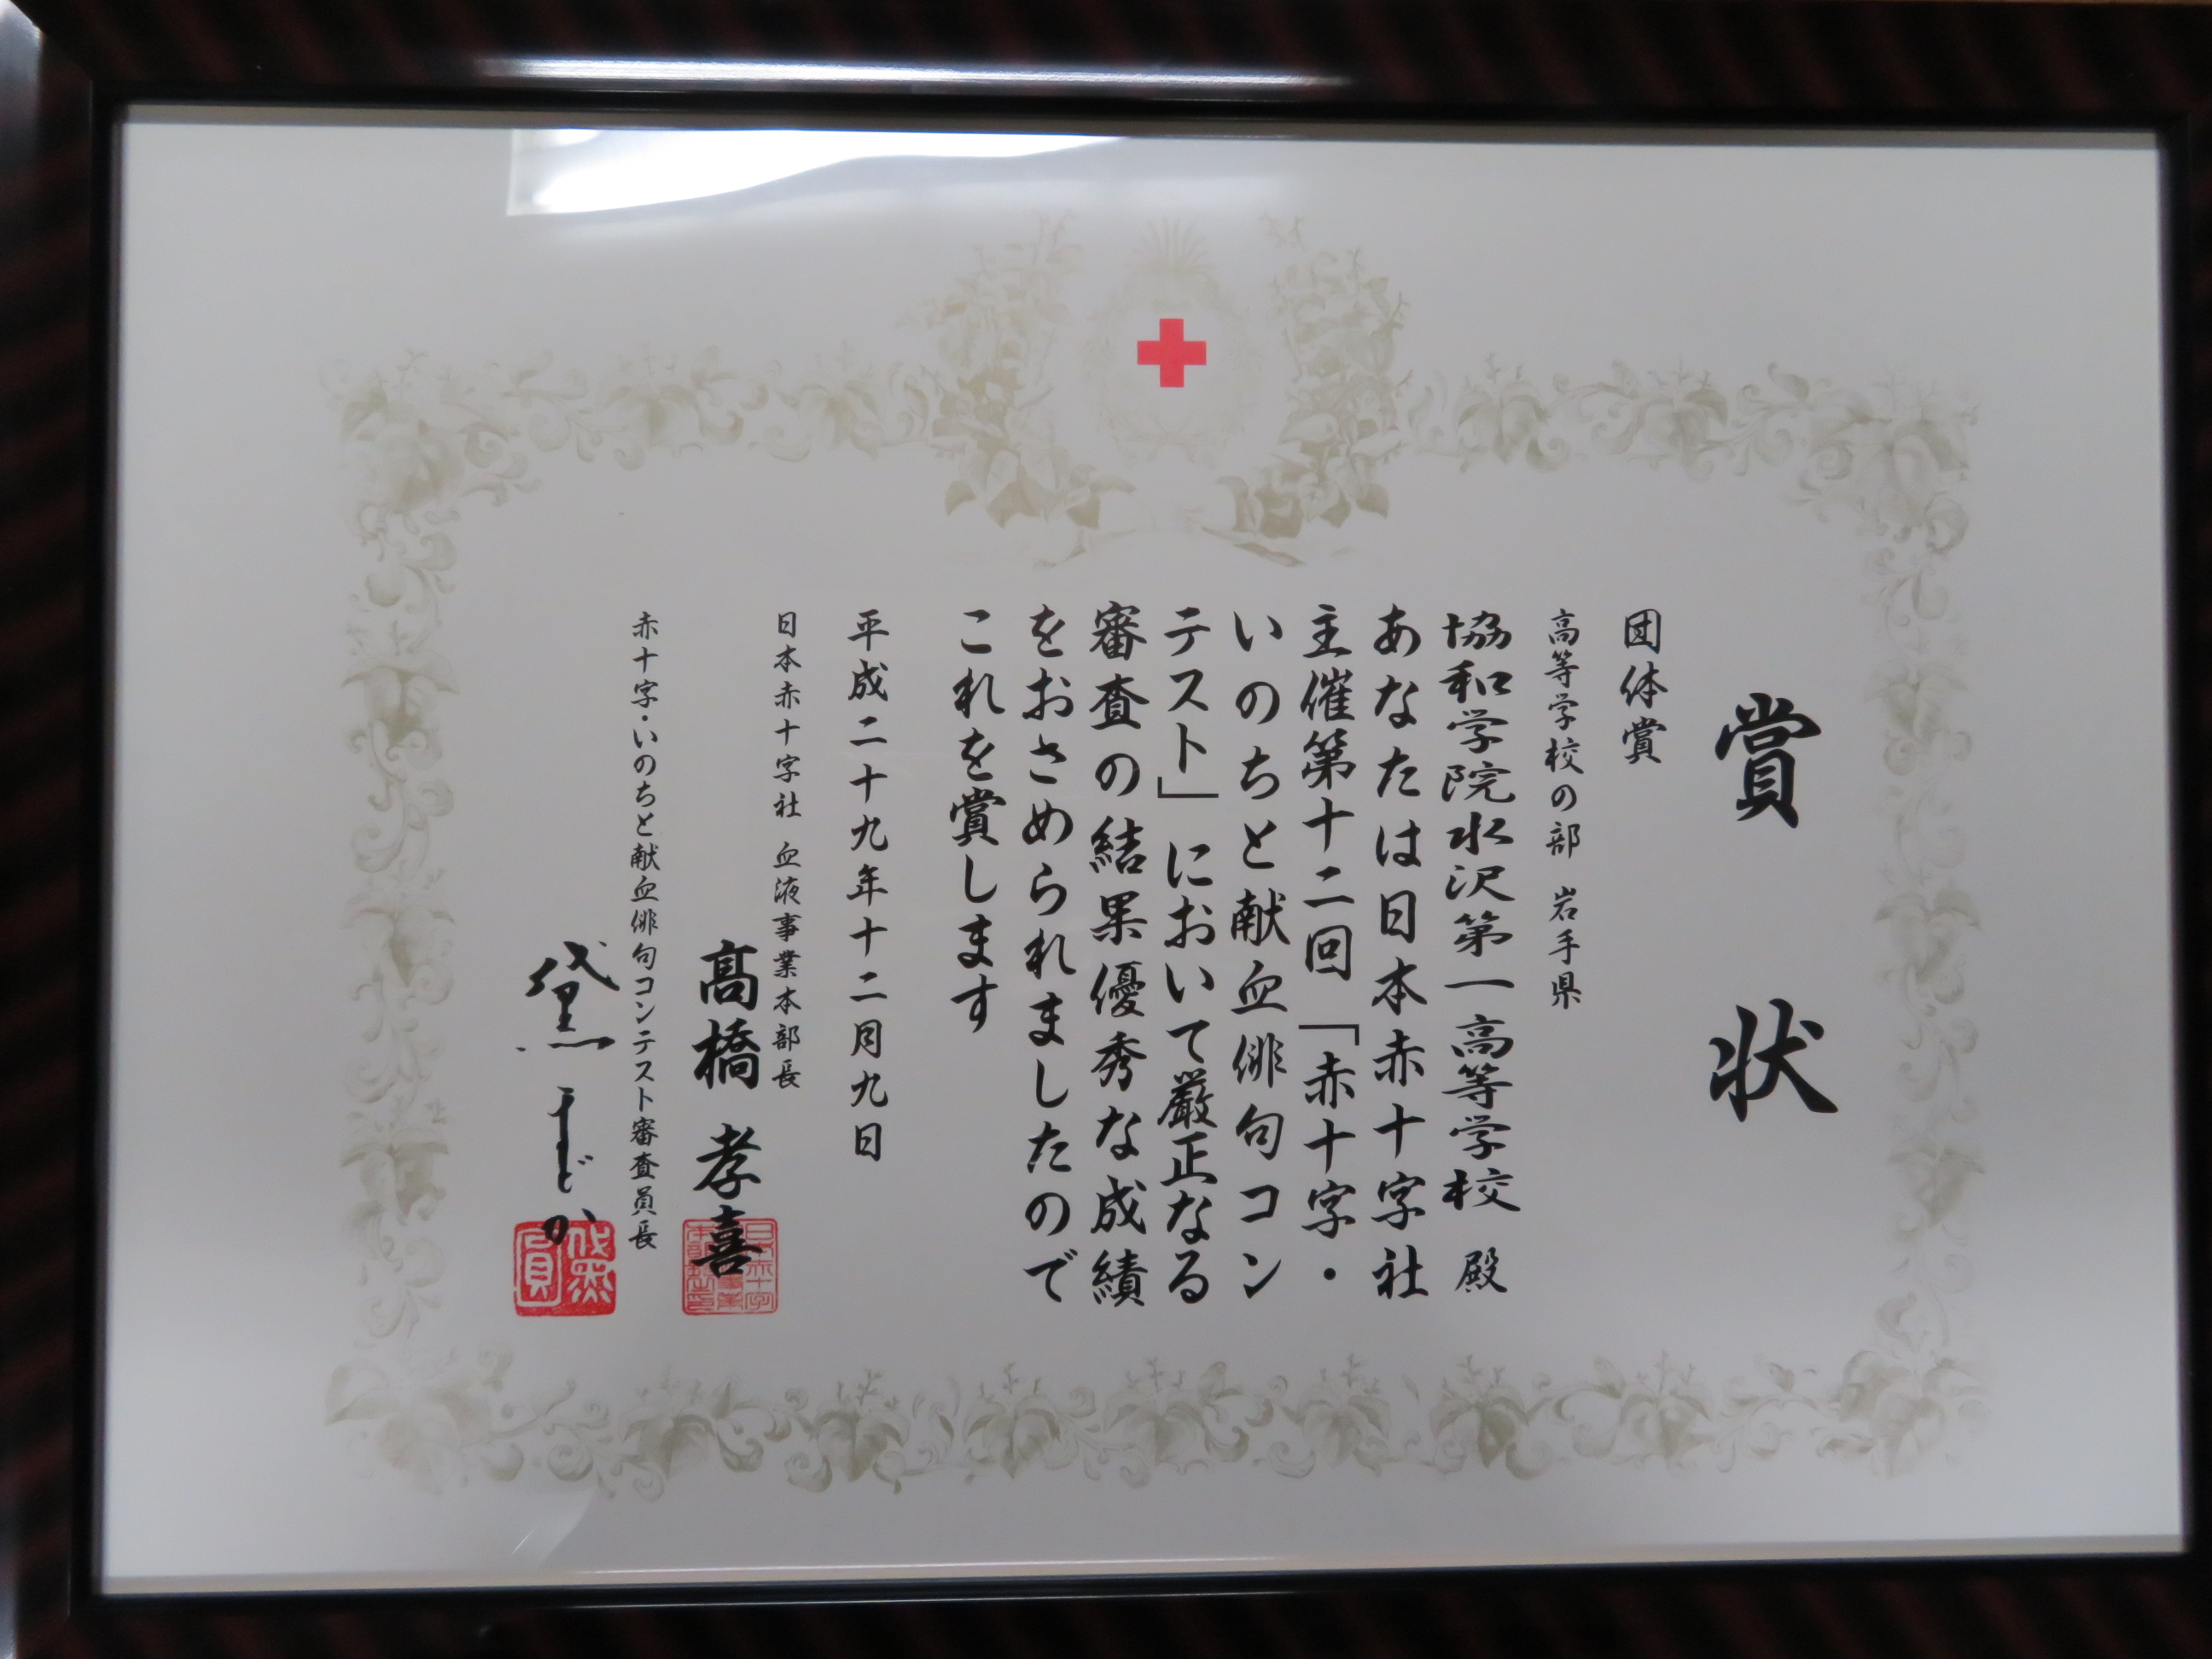 賞状
団体賞
高等学校の部 岩手県
協和学院水沢第一高等学校 殿
あなたは日本赤十字社
主催第十二回「赤十字・
いのちと献血俳句コン
テスト」において厳正なる
審査の結果優秀な成績
をおさめられましたので
これを賞します
平成二十九年十二月九日
日本赤十字社 血液事業本部長
高橋 孝喜
赤十字・いのちと献血俳句コンテスト審査員長
黛 まどか